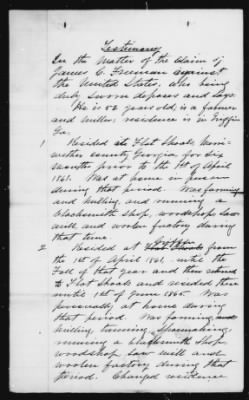 Testimony
In the Matter of the Claim of
James C. Freeman against
the United States, who being
duly sworn deposes and says.
He is 52 years old, is a farmer
and miller, residence is in Griffin
Ga.
1 Resided at Flat Shoals Meri-
wether county, Georgia for six
months prior to the 1st of April
1861. Was at home in person
during that period. Was farming
and milling, and running a
blacksmith shop, woodshop, saw
mill and woolen factory during
that time
2 Resided at from
the 1st of April 1861, until the
Fall of that year and then
to Flat Shoals and resided there
until 1st of June 1865. Was
personally, at home during
that period. Was farming, and
milling, tanning, shoemaking,
running a blacksmith shop
woodshop, saw mill and
woolen factory during that
period. Changed residence